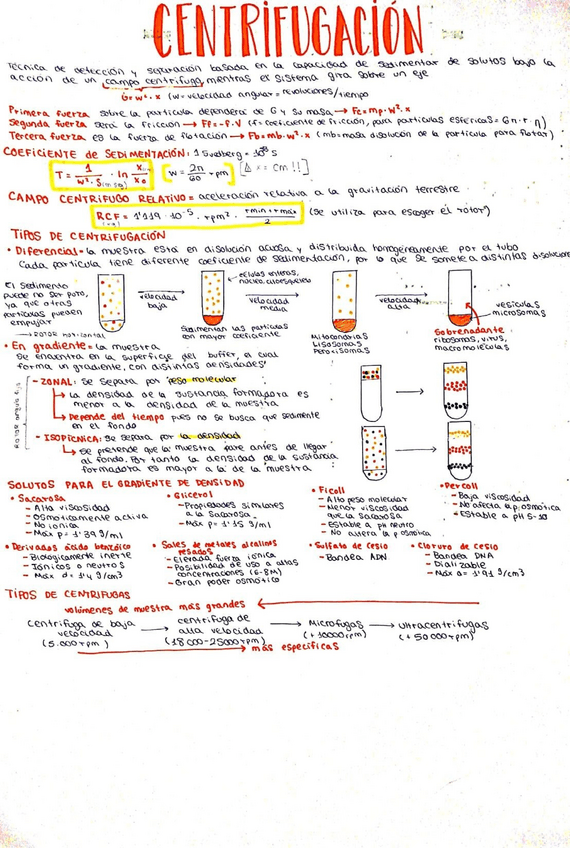 CENTRIFUGACIÓN
Técnica de detección y separación basada en la capacidad de sedimentar de solutos bajo la
acción de un campo centrífugo, mientras el sistema gira sobre un eje
G = w². x (w = velocidad angular = revoluciones/tiempo
Primera fuerza sobre la partícula dependerá de G y su masa → Fc = mp. w². x
Segunda fuerza será la fricción → Ff = -f. V (f = coeficiente de fricción, para partículas esféricas = 6π. r. η)
Tercera fuerza es la fuerza de flotación → Fb = mb. w². x (mb = masa disolución de la partícula para flotar)
COEFICIENTE de SEDIMENTACIÓN: 1 Svedberg =
T = 1 / w². S · ln x / x₀ w = 2π / 60 rpm [Δ x = cm !!]
CAMPO CENTRÍFUGO RELATIVO = aceleración relativa a la gravitación terrestre
RCF = 1'119 · 10⁻⁵ · rpm² · rmin + rmáx / 2 (Se utiliza para escoger el rotor)
TIPOS DE CENTRIFUGACIÓN
• Diferencial = la muestra está en disolución acuosa y distribuida homogéneamente por el tubo
Cada partícula tiene diferente coeficiente de sedimentación, por lo que se somete a distintas
El sedimento
puede no ser puro,
ya que otras
partículas pueden
empujar
→ rotor horizontal
velocidad
baja
células enteras,
núcleo, citoesqueleto
Sedimentan las partículas
con mayor coeficiente
velocidad
media
Mitocondrias
Lisosomas
Peroxisomas
velocidad
alta
vesículas
microsomas
Sobrenadante
ribosomas, virus,
macromoléculas
• En gradiente = la muestra
se encuentra en la superficie del buffer, el cual
forma un gradiente, con distintas densidades
Rotor ángulo fijo
- ZONAL: se separa por peso molecular
→ La densidad de la sustancia formadora es
menor a la densidad de la muestra
→ Depende del tiempo pues no se busca que sedimente
en el fondo
- ISOPÍCNICA: Se separa por la densidad
→ se pretende que la muestra pare antes de llegar
al fondo. Por tanto la densidad de la sustancia
formadora es mayor a la de la muestra
SOLUTOS PARA EL GRADIENTE DE DENSIDAD
• Sacarosa
- Alta viscosidad
- Osmóticamente activa
- No iónica
- Máx p = 1'39 g/ml
• Glicerol
- Propiedades similares
a la sacarosa.
- Máx p = 1'15 g/ml
• Ficoll
- Alto peso molecular
- Menor viscosidad
que la sacarosa
- Estable a pH neutro
- No altera la p osmótica
• Percoll
- Baja viscosidad
- No afecta la p. osmótica
- Estable a pH 5-10
• Derivados ácido benzóico
- Biológicamente inerte
- Iónicos o neutros
- Máx d = 1'4 g/cm³
• Sales de metales alcalinos
pesados
- Elevada fuerza iónica
- Posibilidad de uso a altas
concentraciones (6-8M)
- Gran poder osmótico
• Sulfato de cesio
- Bandea ADN
• Cloruro de cesio
- Bandea DNA
- Dializable
- Máx d = 1'91 g/cm³
TIPOS DE CENTRIFUGAS
volúmenes de muestra más grandes
Centrífuga de baja
velocidad
(5.000 rpm)
centrífuga de
alta velocidad
(18000-25000 rpm)
Microfugas
(+10000 rpm)
Ultracentrífugas
(+50000 rpm)
más específicas